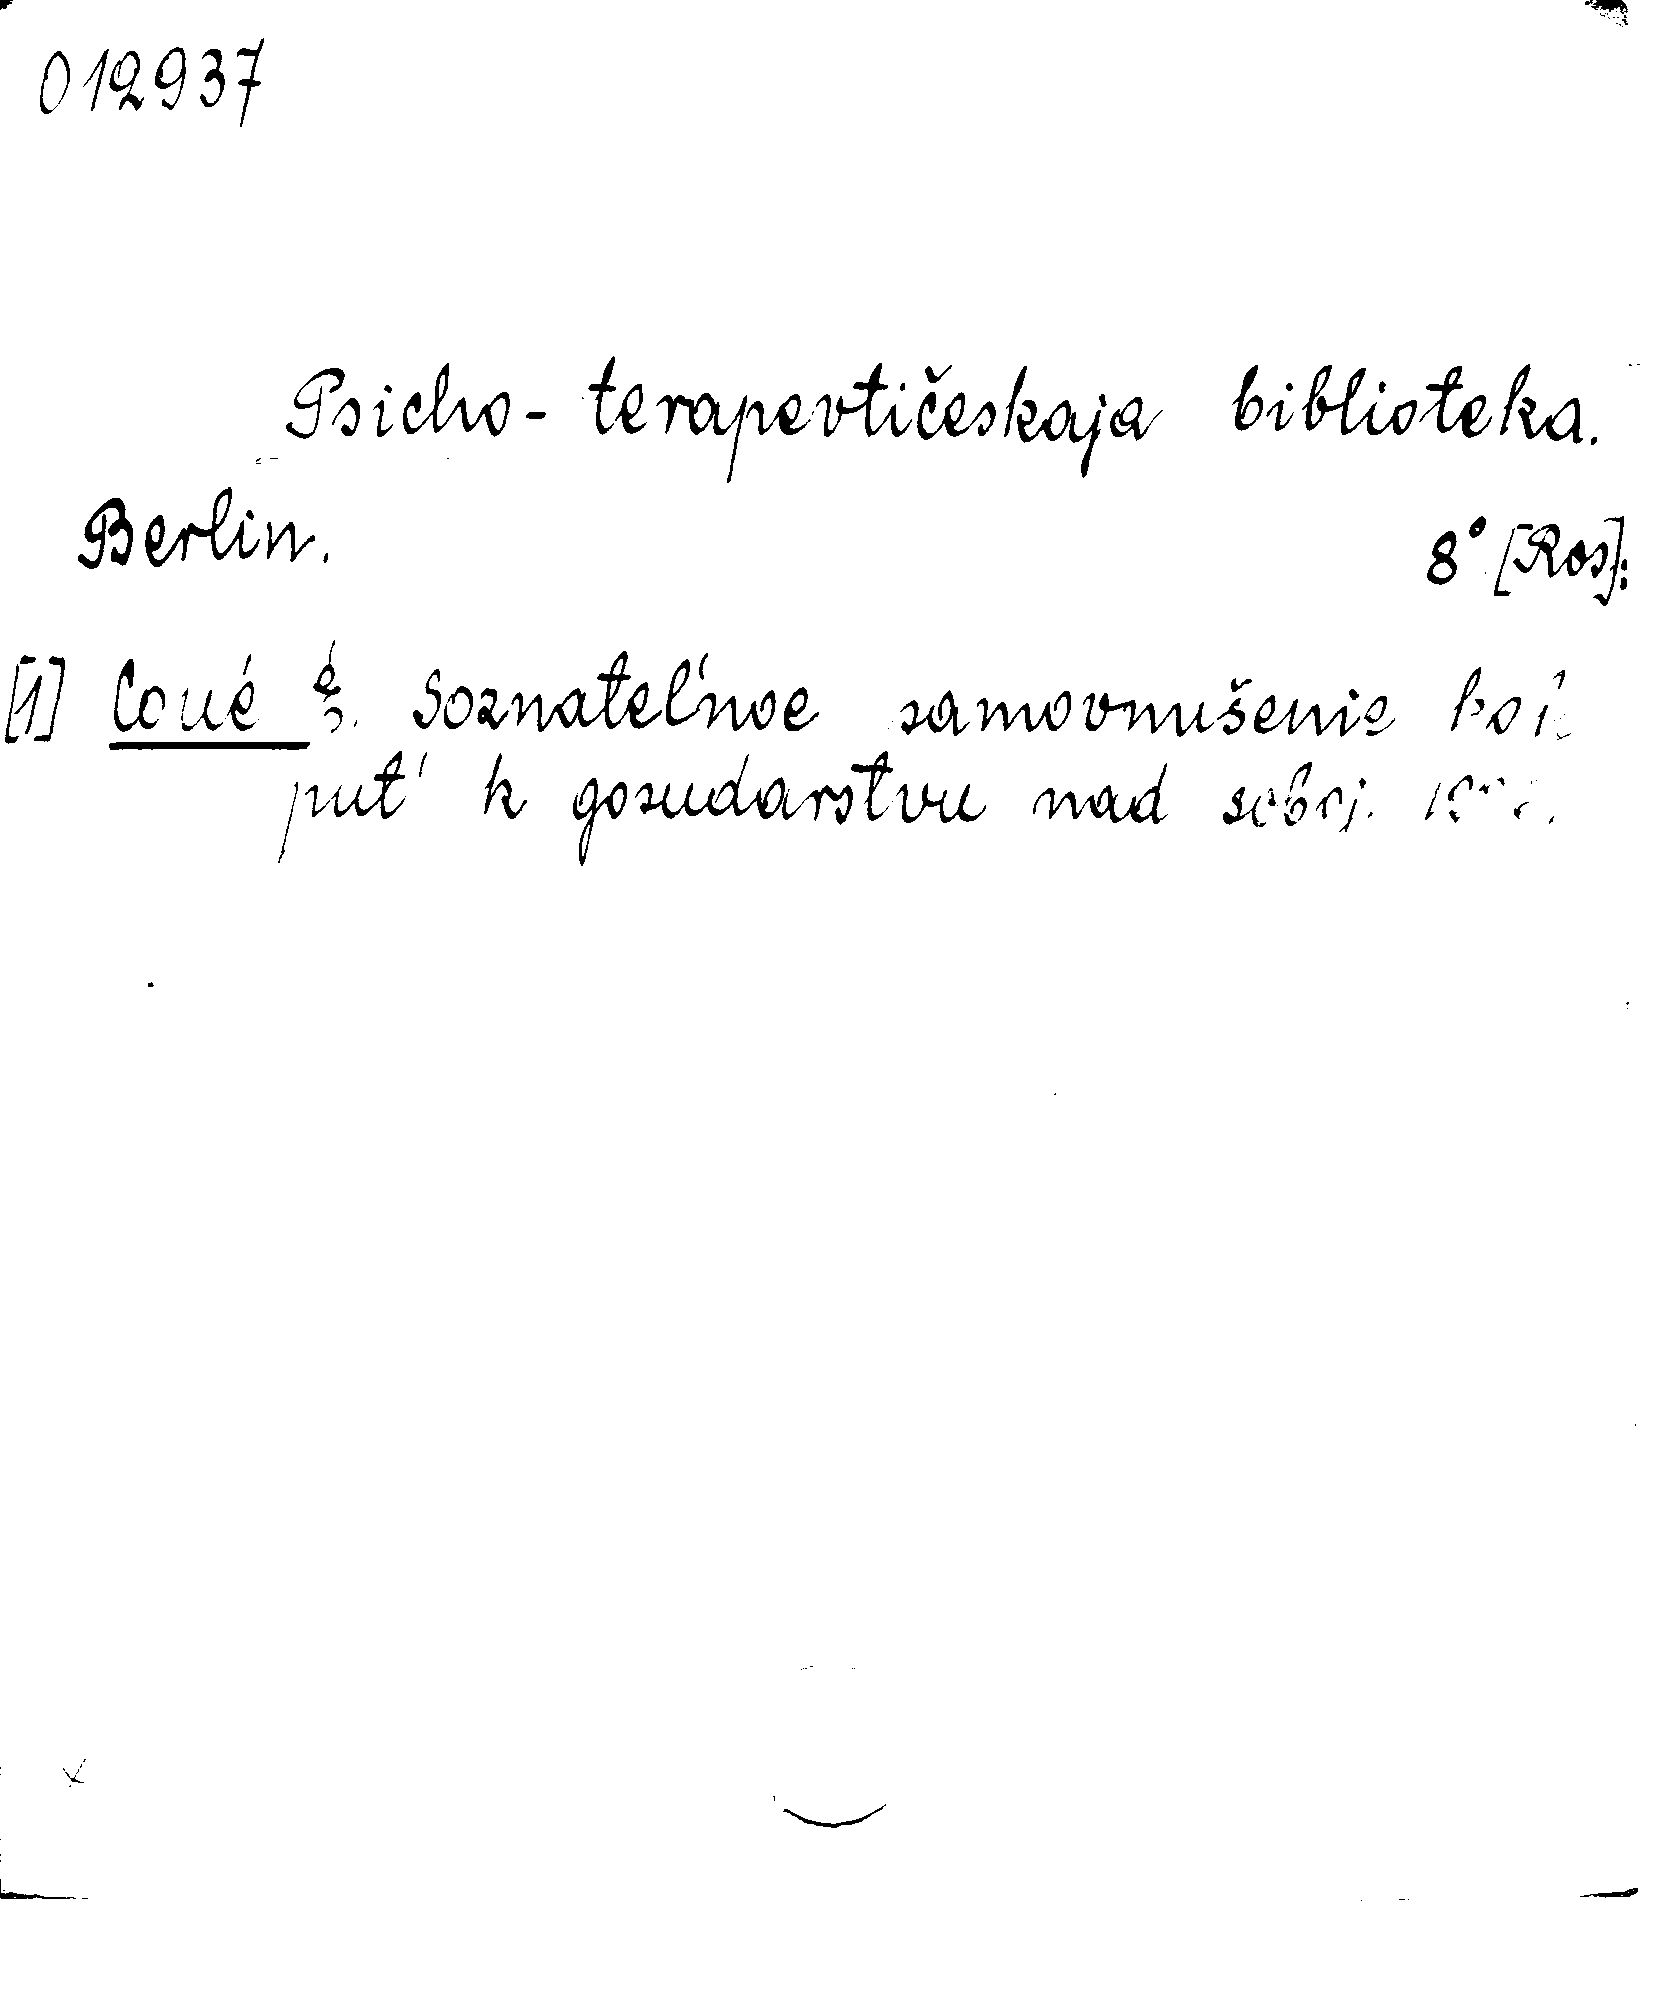 012937
Psicho-terapevtičeskaja biblioteka.
Berlin. 8° [Ros]:
[1] Coué É. Soznatel'noe samovnušenie
put' k gosudarstvu nad soboj.